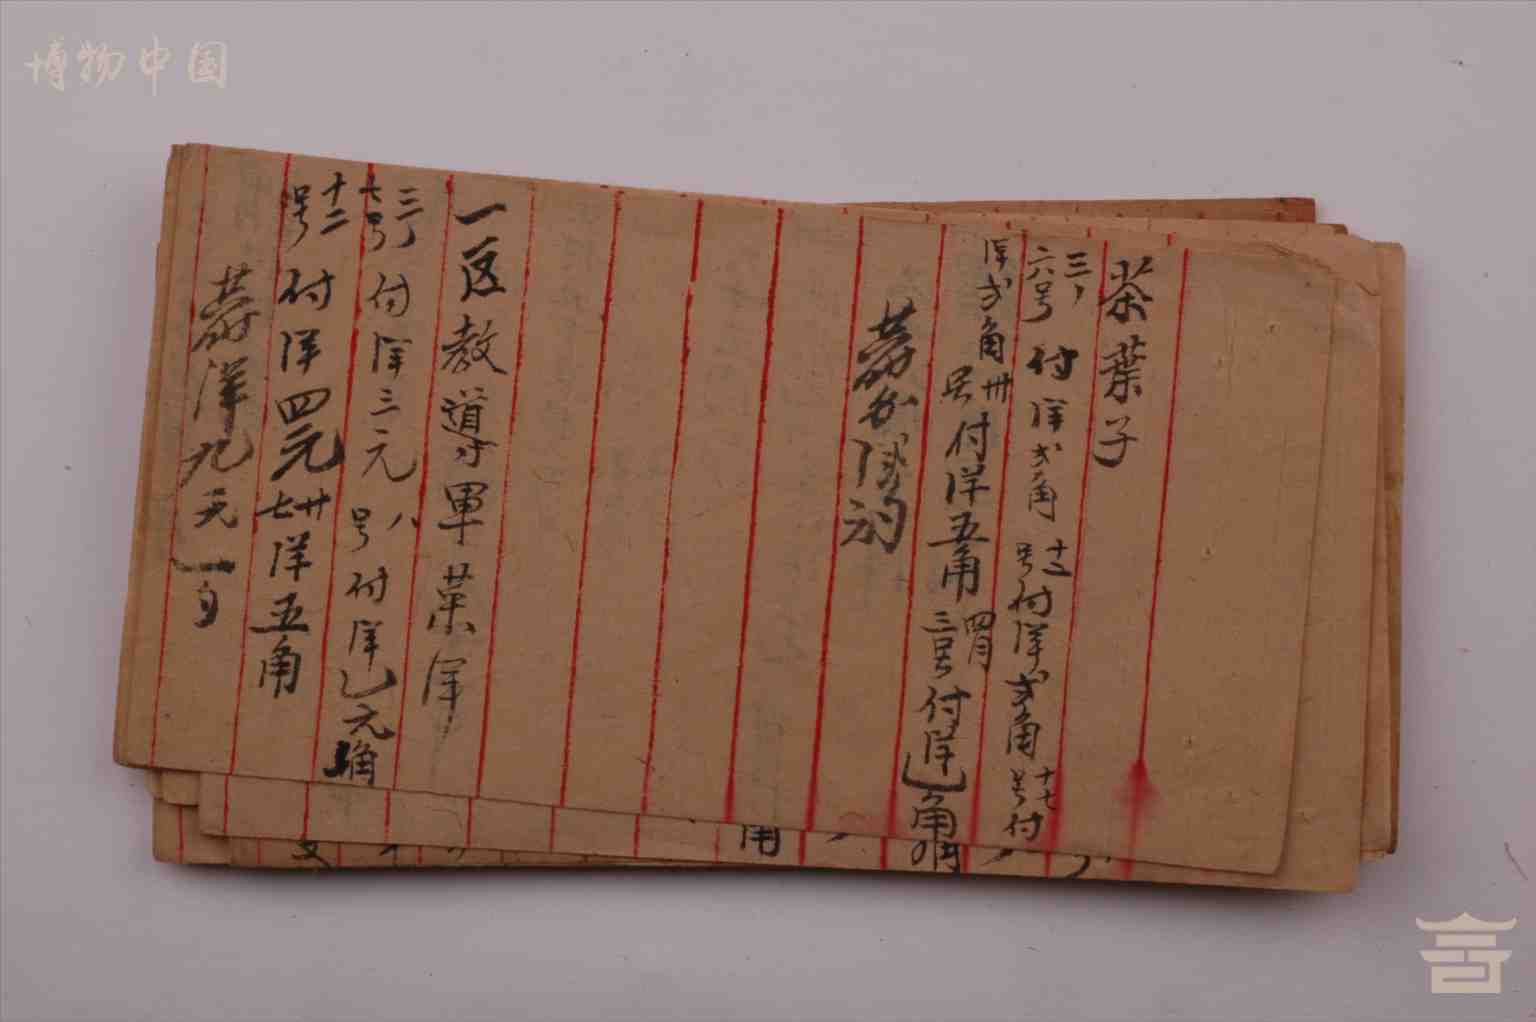 博物中国
茶葉子
三月
六号付洋弍角十二号付洋弍角十七号付
洋弍角卅号付洋五角四月三号付洋乚角
一区教導軍菜洋
三月
七号付洋三元八号付洋乚元
十二号付洋四元卅七洋五角
洋九元一